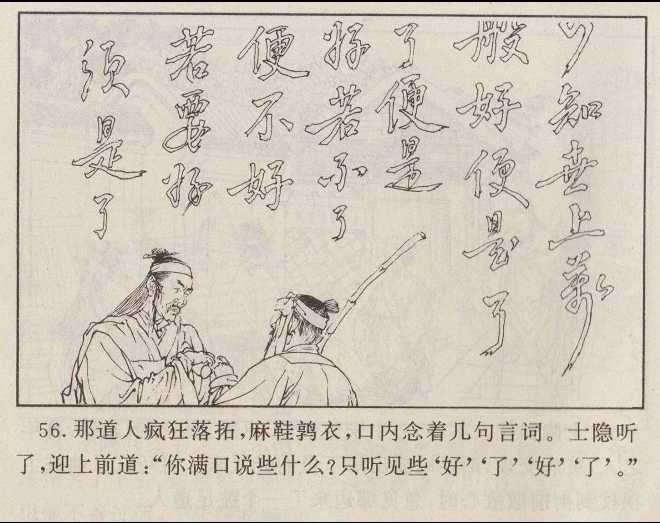 可知世上萬
般好便是了
了便是
好若不了
便不好
若要好
须是了
56. 那道人疯狂落拓，麻鞋鹑衣，口内念着几句言词。士隐听
了，迎上前道：“你满口说些什么？只听见些‘好’‘了’‘好’‘了’。”